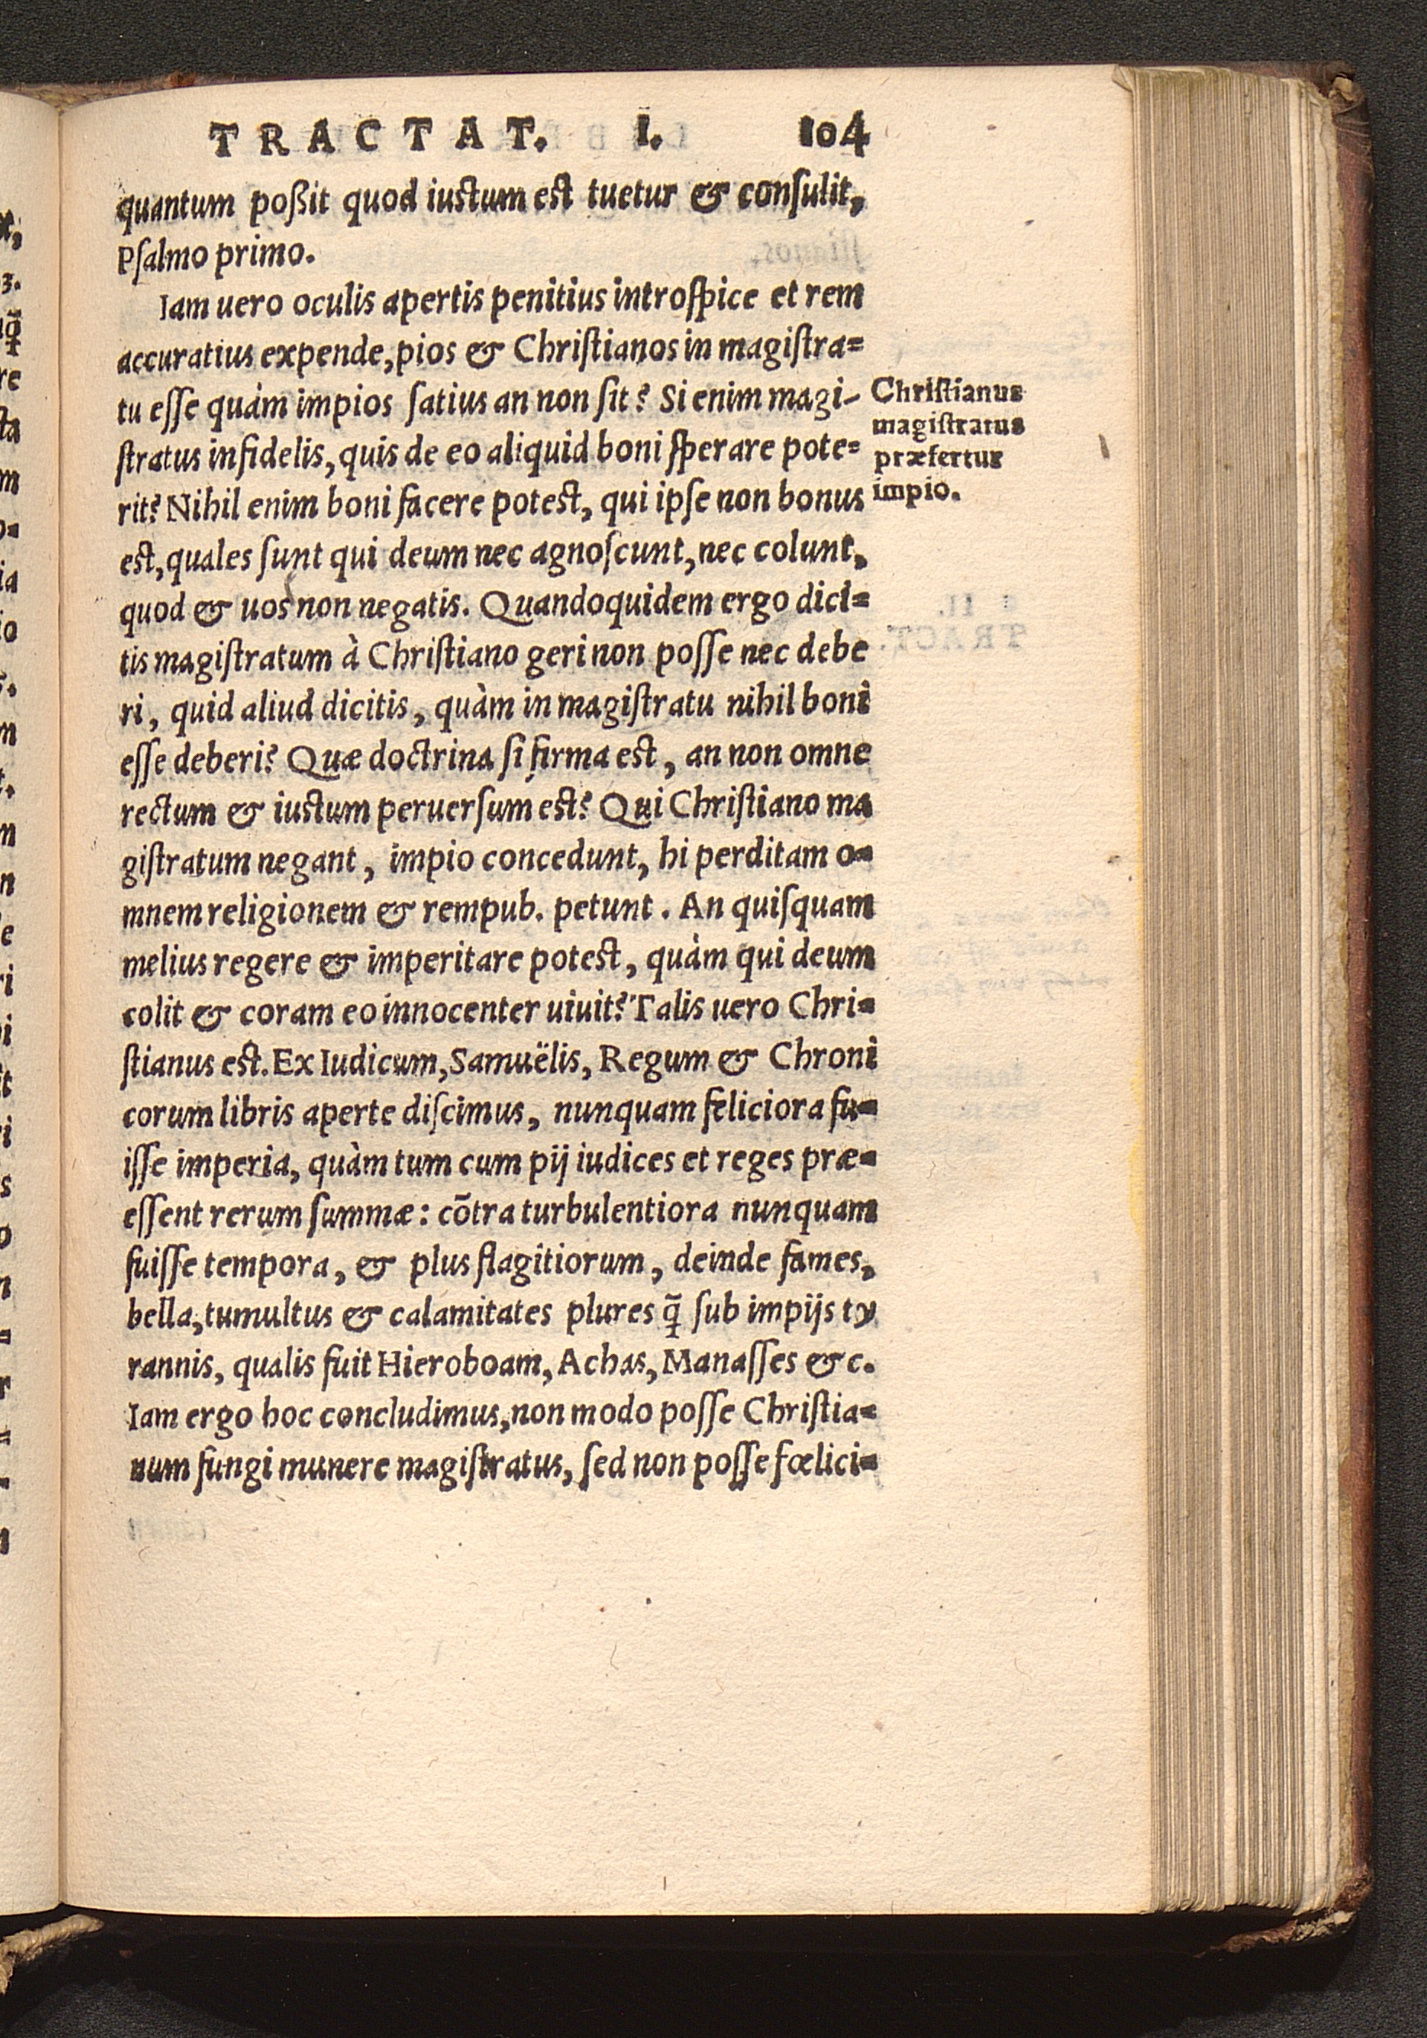 TRACTAT. I. 104
quantum poßit quod iustum est tuetur & consulit,
Psalmo primo.
Iam uero oculis apertis penitius introspice et rem
accuratius expende, pios & Christianos in magistra=
tu esse quàm impios satius an non sit? Si enim magi-
stratus infidelis, quis de eo aliquid boni sperare pote=
rit? Nihil enim boni facere potest, qui ipse non bonus
est, quales sunt qui deum nec agnoscunt, nec colunt,
quod & uos non negatis. Quandoquidem ergo dici=
tis magistratum à Christiano geri non posse nec debe
ri, quid aliud dicitis, quàm in magistratu nihil boni
esse deberi? Quæ doctrina si firma est, an non omne
rectum & iustum peruersum est? Qui Christiano ma
gistratum negant, impio concedunt, hi perditam o=
mnem religionem & rempub. petunt. An quisquam
melius regere & imperitare potest, quàm qui deum
colit & coram eo innocenter uiuit? Talis uero Chri=
stianus est. Ex Iudicum, Samuëlis, Regum & Chroni
corum libris aperte discimus, nunquam feliciora fu=
isse imperia, quàm tum cum pij iudices et reges præ=
essent rerum summæ: cõtra turbulentiora nunquam
fuisse tempora, & plus flagitiorum, deinde fames,
bella, tumultus & calamitates plures q̃ sub impijs ty
rannis, qualis fuit Hieroboam, Achas, Manasses &c.
Iam ergo hoc concludimus, non modo posse Christia=
num fungi munere magistratus, sed non posse fœlici=
Christianus
magistratus
præfertur
impio.